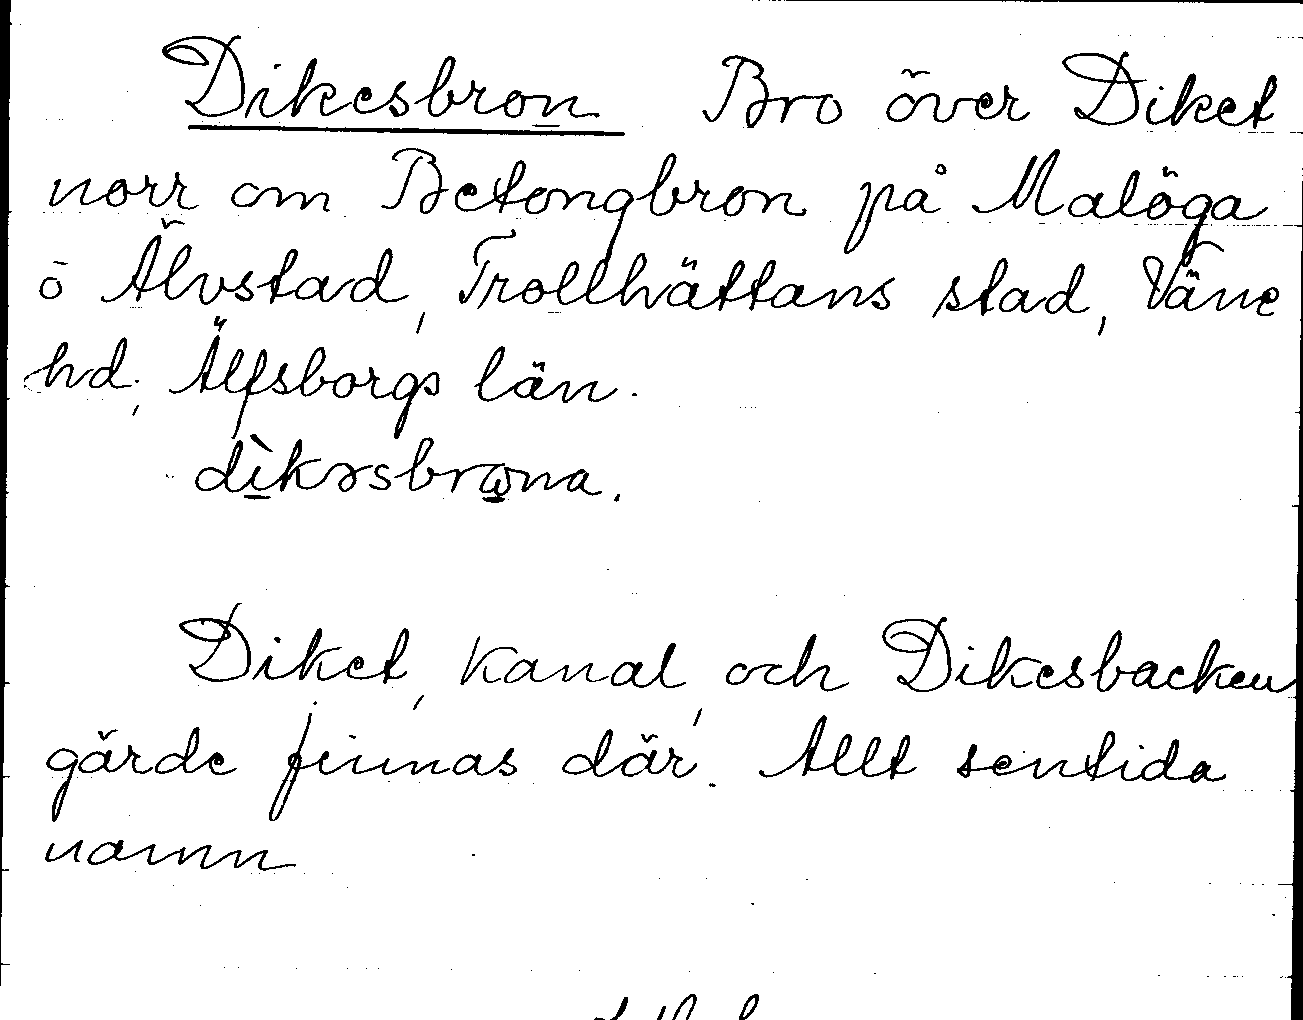 Dikesbron Bro över Diket
norr om Betongbron på Malöga
ö Älvstad, Trollhättans stad, Väne
hd, Älfsborgs län.
dìkəsbrωna.
Diket, kanal, och Dikesbacken
gärde finnas där. Allt sentida
namn